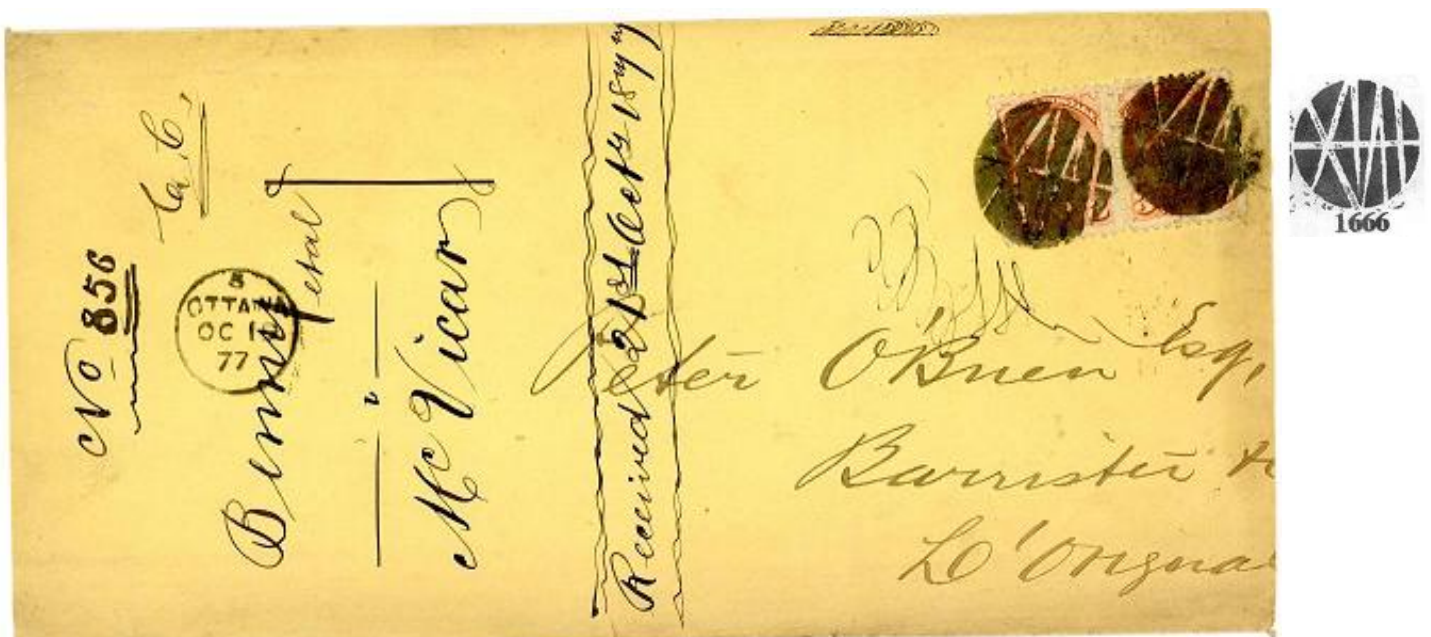 No 856
Ca. C.
OTTAWA
OC 1
77
et al
McVicar
Received 21st Oct 1877
Peter O'Brien Esq,
Barrister
L'Orignal
1666